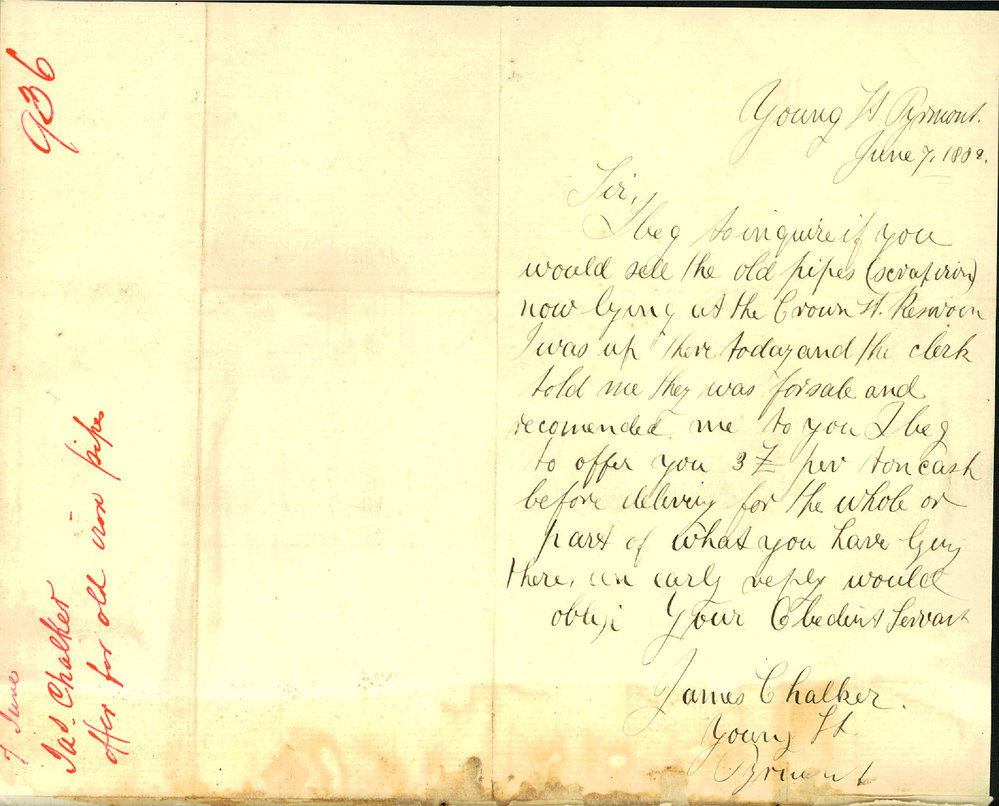 936
7 June
Jas. Chalker
offer for old iron pipes
Young St Pyrmont.
June 7, 1882.
Sir,
I beg to inquire if you
would sell the old pipes (scrap iron)
now lying at the Crown St. Reservoir
I was up there today and the clerk
told me they was for sale and
recomended me to you I beg
to offer you 3 £ per ton cash
before delivery for the whole or
part of what you have lying
there, an early reply would
oblige Your Obedient Servant
James Chalker.
Young St
Pyrmont